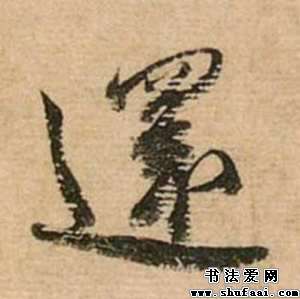 還
书法爱网
www.shufaai.com